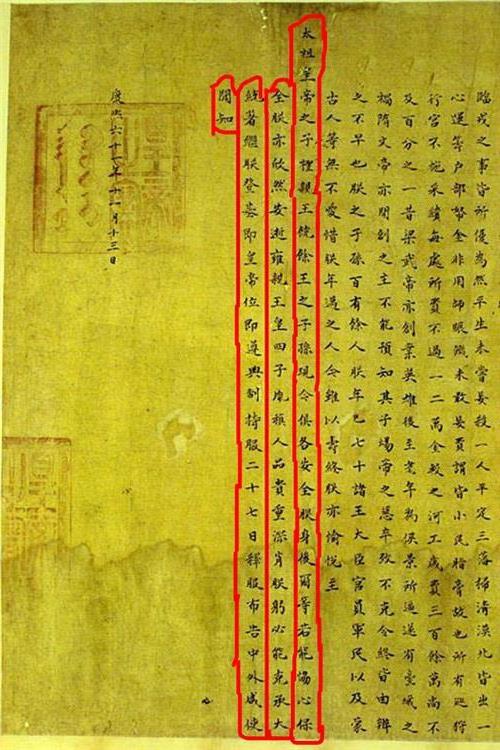 臨戎之事皆所優為然平生未嘗妄殺一人平定三藩掃清漠北皆出一
心運籌戶部帑金非用師賑饑未敢妄費謂皆小民脂膏故也所有巡狩
行宮不施采繢每處所費不過一二萬金較之河工歲費三百餘萬尚不
及百分之一昔梁武帝亦創業英雄後至耄年為侯景所逼遂有臺城之
禍隋文帝亦開創之主不能預知其子煬帝之惡卒致不克令終皆由辨
之不早也朕之子孫百有餘人朕年已七十諸王大臣官員軍民以及蒙
古人等無不愛惜朕年邁之人今雖以壽終朕亦愉悅至
太祖皇帝之子禮親王饒餘王之子孫現今俱各安全朕身後爾等若能協心保
全朕亦欣然安逝雍親王皇四子胤禛人品貴重深肖朕躬必能克承大
統著繼朕登基即皇帝位即遵典制持服二十七日釋服布告中外咸使
聞知
康熙六十一年十一月十三日